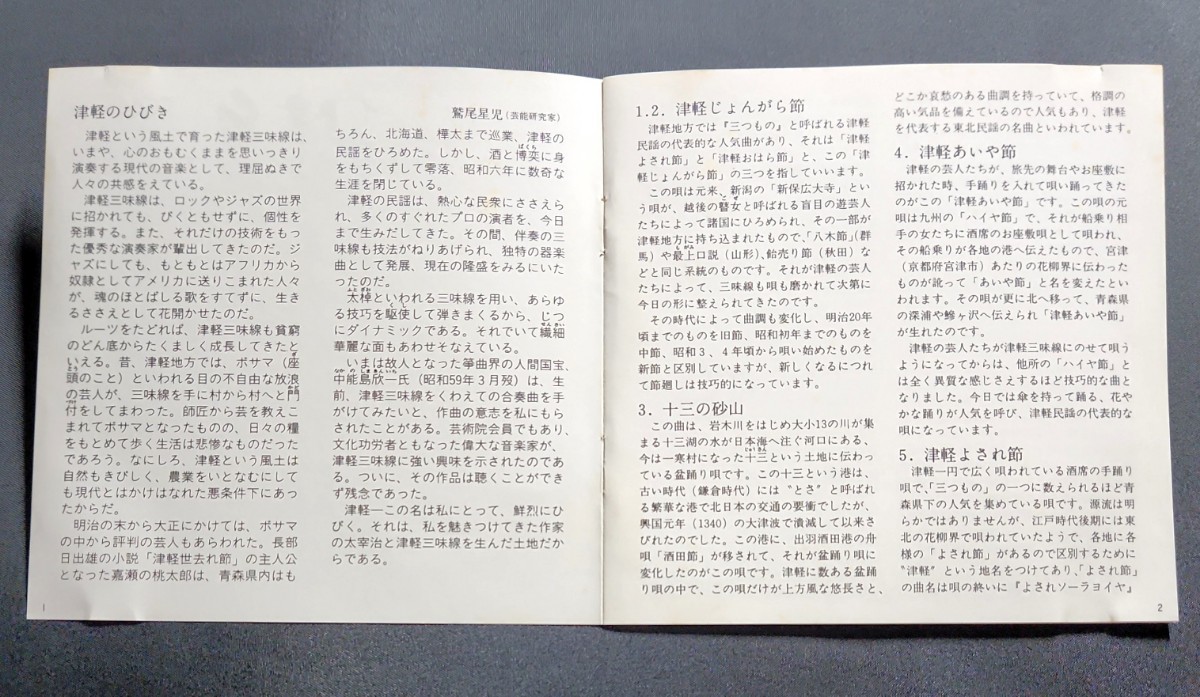 津軽のひびき
鷲尾星児(芸能研究家)
津軽という風土で育った津軽三味線は、
いまや、心のおもむくままを思いっきり
演奏する現代の音楽として、理屈ぬきで
人々の共感をえている。
津軽三味線は、ロックやジャズの世界
に招かれても、びくともせずに、個性を
発揮する。また、それだけの技術をもっ
た優秀な演奏家が輩出してきたのだ。ジ
ャズにしても、もともとはアフリカから
奴隷としてアメリカに送りこまれた人々
が、魂のほとばしる歌をすてずに、生き
るささえとして花開かせたのだ。
ルーツをたどれば、津軽三味線も貧窮
のどん底からたくましく成長してきたと
いえる。昔、津軽地方では、ボサマ(座
頭のこと)といわれる目の不自由な放浪
の芸人が、三味線を手に村から村へと門
付をしてまわった。師匠から芸を教えこ
まれてボサマとなったものの、日々の糧
をもとめて歩く生活は悲惨なものだった
であろう。なにしろ、津軽という風土は
自然もきびしく、農業をいとなむにして
も現代とはかけはなれた悪条件下にあっ
たからだ。
明治の末から大正にかけては、ボサマ
の中から評判の芸人もあらわれた。長部
日出雄の小説「津軽世去れ節」の主人公
となった嘉瀬の桃太郎は、青森県内はも
ちろん、北海道、樺太まで巡業、津軽の
民謡をひろめた。しかし、酒と博奕に身
をもちくずして零落、昭和六年に数奇な
生涯を閉じている。
津軽の民謡は、熱心な民衆にささえら
れ、多くのすぐれたプロの演者を、今日
まで生みだしてきた。その間、伴奏の三
味線も技法がねりあげられ、独特の器楽
曲として発展、現在の隆盛をみるにいた
ったのだ。
太棹といわれる三味線を用い、あらゆ
る技巧を駆使して弾きまくるから、じつ
にダイナミックである。それでいて繊細
華麗な面もあわせそなえている。
いまは故人となった箏曲界の人間国宝、
中能島欣一氏(昭和59年3月歿)は、生
前、津軽三味線をくわえての合奏曲を手
がけてみたいと、作曲の意志を私にもら
されたことがある。芸術院会員でもあり、
文化功労者ともなった偉大な音楽家が、
津軽三味線に強い興味を示されたのであ
る。ついに、その作品は聴くことができ
ず残念であった。
津軽一この名は私にとって、鮮烈にひ
びく。それは、私を魅きつけてきた作家
の太宰治と津軽三味線を生んだ土地だか
らである。
1
1.2. 津軽じょんがら節
津軽地方では『三つもの』と呼ばれる津軽
民謡の代表的な人気曲があり、それは「津軽
よされ節」と「津軽おはら節」と、この「津
軽じょんがら節」の三つを指していいます。
この唄は元来、新潟の「新保広大寺」とい
う唄が、越後の瞽女と呼ばれる盲目の遊芸人
たちによって諸国にひろめられ、その一部が
津軽地方に持ち込まれたもので、「八木節」(群
馬)や最上口説(山形)、飴売り節(秋田)な
どと同じ系統のものです。それが津軽の芸人
たちによって、三味線も唄も磨かれて次第に
今日の形に整えられてきたのです。
その時代によって曲調も変化し、明治20年
頃までのものを旧節、昭和初年までのものを
中節、昭和3、4年頃から唄い始めたものを
新節と区別していますが、新しくなるにつれ
て節廻しは技巧的になっています。
3. 十三の砂山
この曲は、岩木川をはじめ大小13の川が集
まる十三湖の水が日本海へ注ぐ河口にある、
今は一寒村になった十三という土地に伝わっ
ている盆踊り唄です。この十三という港は、
古い時代(鎌倉時代)には〝とさ〟と呼ばれ
る繁華な港で北日本の交通の要衝でしたが、
興国元年(1340)の大津波で潰滅して以来さ
びれたのでした。この港に、出羽酒田港の舟
唄「酒田節」が移されて、それが盆踊り唄に
変化したのがこの唄です。津軽に数ある盆踊
り唄の中で、この唄だけが上方風な悠長さと、
どこか哀愁のある曲調を持っていて、格調の
高い気品を備えているので人気もあり、津軽
を代表する東北民謡の名曲といわれています。
4. 津軽あいや節
津軽の芸人たちが、旅先の舞台やお座敷に
招かれた時、手踊りを入れて唄い踊ってきた
のがこの「津軽あいや節」です。この唄の元
唄は九州の「ハイヤ節」で、それが船乗り相
手の女たちに酒席のお座敷唄として唄われ、
その船乗りが各地の港へ伝えたもので、宮津
(京都府宮津市)あたりの花柳界に伝わった
ものが訛って「あいや節」と名を変えたとい
われます。その唄が更に北へ移って、青森県
の深浦や鰺ヶ沢へ伝えられ「津軽あいや節」
が生れたのです。
津軽の芸人たちが津軽三味線にのせて唄う
ようになってからは、他所の「ハイヤ節」と
は全く異質な感じさえするほど技巧的な曲と
なりました。今日では傘を持って踊る、花や
かな踊りが人気を呼び、津軽民謡の代表的な
唄になっています。
5. 津軽よされ節
津軽一円で広く唄われている酒席の手踊り
唄で、「三つもの」の一つに数えられるほど青
森県下の人気を集めている唄です。源流は明
らかではありませんが、江戸時代後期には東
北の花柳界で唄われていたようで、各地に各
様の「よされ節」があるので区別するために
〝津軽〟という地名をつけてあり、「よされ節」
の曲名は唄の終いに『よされソーラヨイヤ』
2